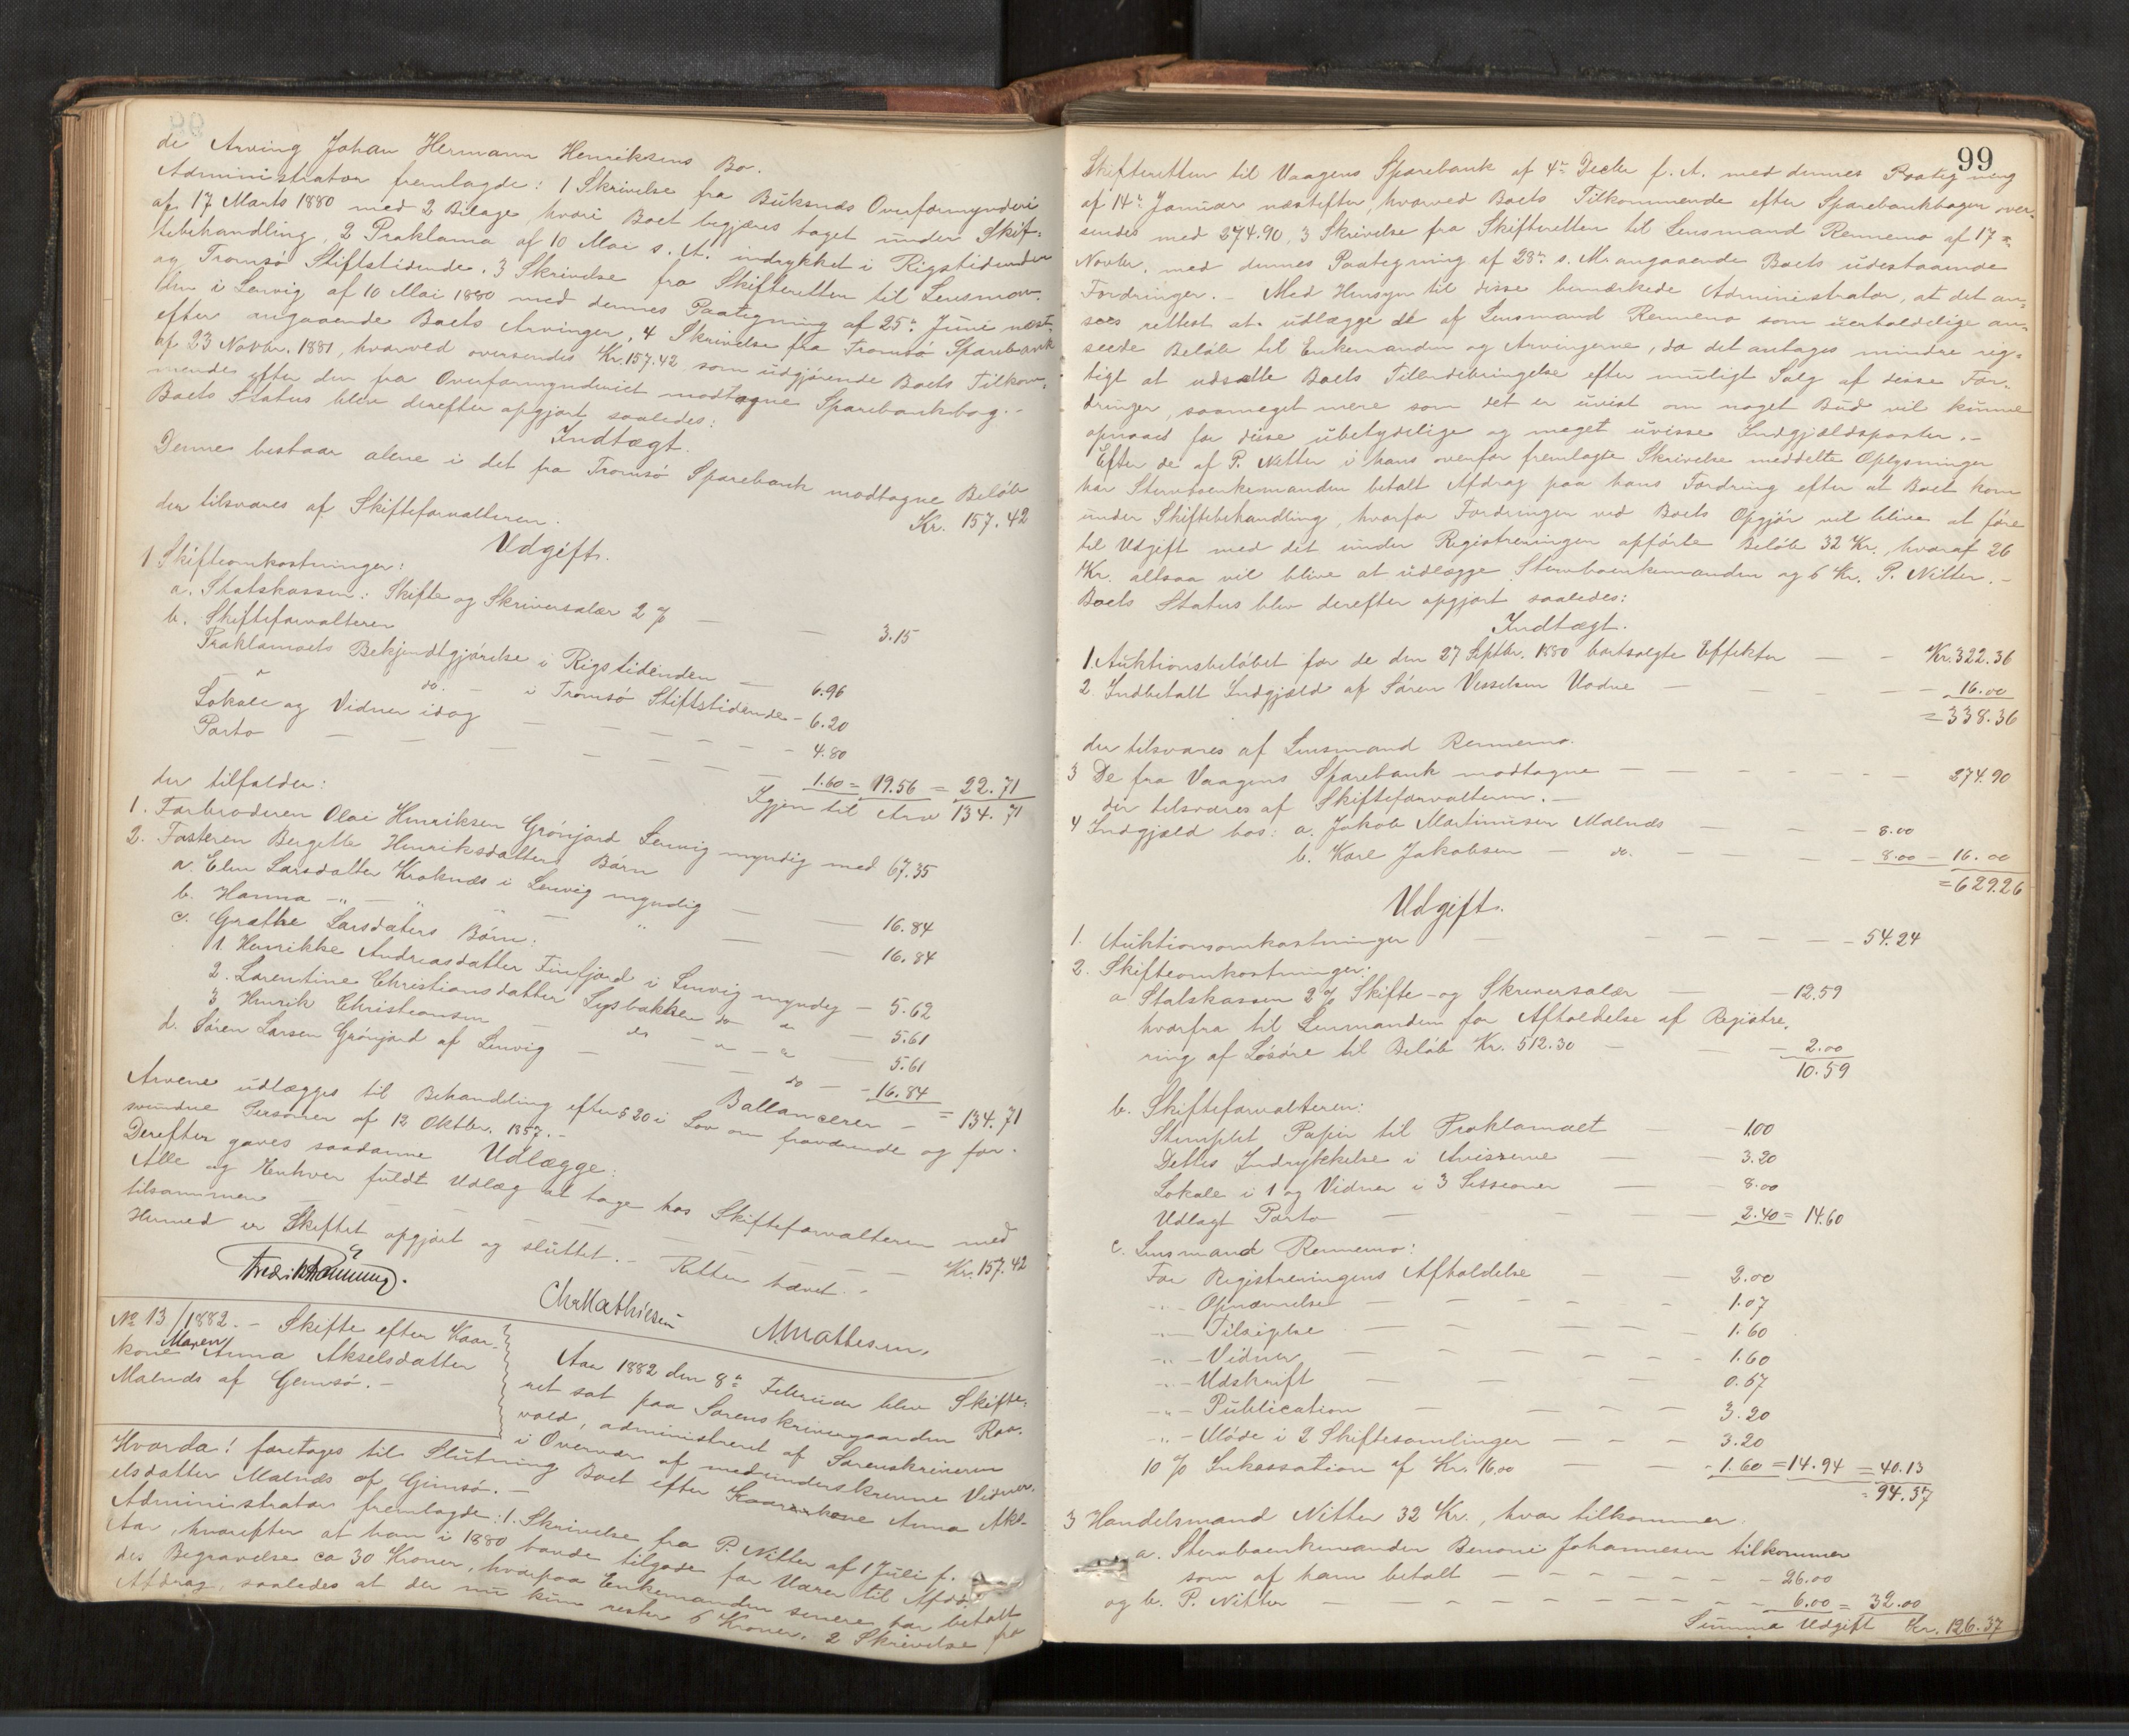 de Arving Johan Hermann Henriksens Bo.
Administrator fremlagde: 1 Skrivelse fra Buksnæs Overformynderi
af 17 Marts 1880 med 2 Bilage, hvori Boet begjæres taget under Skif-
tebehandling, 2 Proklama af 10 Mai s. A. indrykket i Rigstidenden
og Tromsø Stiftstidende. 3 Skrivelse fra Skifteretten til Lensman-
den i Lenvig af 10 Mai 1880 med dennes Paategning af 25de Juni næst-
efter angaaende Boets Arvinger, 4 Skrivelse fra Tromsø Sparebank
af 23 Novbr. 1881, hvorved oversendes Kr. 157.42 som udgjørende Boets Tilkom-
mende efter den fra Overformynderiet modtagne Sparebankbog. -
Boets Status blev derefter opgjort saaledes:
Indtægt.
Denne bestaar alene i det fra Tromsø Sparebank modtagne Beløb
Kr. 157.42
der tilsvares af Skifteforvalteren.
Udgift.
1 Skifteomkostninger:
a. Statskassen: Skifte og Skriversalær 2 % — — 3.15
b. Skifteforvalteren
Proklamaets Bekjendtgjørelse i Rigstidenden — 6.96
— " — do. — i Tromsø Stiftstidende - 6.20
Lokale og Vidner idag — — — — 4.80
Porto — — — — — 1.60 = 19.56 = 22.71
Igjen til Arv 134.71
der tilfalder:
1. Farbroderen Olai Henriksen Grønjord Lenvig myndig med 67.35
2. Fasteren Bergette Henriksdatters Børn
a. Elen Larsdatter Kroknæs i Lenvig myndig — — 16.84
b. Hanna -"- — " — " — — 16.84
c. Grethe Larsdaters Børn:
1. Henrikke Andreasdatter Finfjord i Lenvig myndig — 5.62
2. Lorentine Christiansdatter Lysbakken do " — 5.61
3. Henrik Christiansen — do - " - " — 5.61
d. Søren Larsen Grønjord af Lenvig — — — do — - 16.84
Ballancerer — = 134.71
Arvene udlægges til Behandling efter § 20 i Lov om fraværende og for-
svundne Personer af 12 Oktbr. 1857. -
Derefter gaves saadanne Udlægge:
Alle og Enhver fuldt Udlæg at tage hos Skifteforvalteren med
tilsammen — — — — — — Kr. 157.42
Hermed er Skiftet opgjort og sluttet. - Retten hævet. -
Chr Mathiesen
M Mathesen.
No 13/1882. - Skifte efter Kaar-
kone Maren Anna Akselsdatter
Malnæs af Gimsø. -
Aar 1882 den 8de Februar blev Skifte-
ret sat paa Sorenskrivergaarden Rav-
vold, administreret af Sorenskriveren
i Overvær af medunderskrevne Vidner.
Hvorda! foretoges til Slutning Boet efter Kaarenkone Anna Aks-
elsdatter Malnæs af Gimsø. -
Administrator fremlagde: 1. Skrivelse fra P. Nitter af 1 Juli f.
Aar, hvorefter at han i 1880 havde tilgode for Varer til Afdø-
des Begravelse ca 30 Kroner, hvorpaa Enkemanden senere har betalt
Afdrag, saaledes at der nu kun rester 6 Kroner. 2 Skrivelse fra
99
Skifteretten til Vaagens Sparebank af 4de Decbr f. A. med dennes Paategning
af 14de Januar næstefter, hvorved Boets Tilkommende efter Sparebankbogen over-
sendes med 274.90, 3 Skrivelse fra Skifteretten til Lensmand Rennemo af 17de
Novbr. med dennes Paategning af 28de s. M. angaaende Boets udestaaende
Fordringer. - Med Hensyn til disse bemærkede Administrator, at det an-
sees rettest at udlægge de af Lensmand Rennemo som uerholdelige an-
seede Beløb til Enkemanden og Arvingerne, da det antages mindre rig-
tigt at udsætte Boets Tilendebringelse efter muligt Salg af disse For-
dringer, saameget mere som det er uvist om noget Bud vil kunne
opnaaes for disse ubetydelige og meget uvisse Indgjældsposter. -
Efter de af P. Nitter i hans ovenfor fremlagte Skrivelse meddelte Oplysninger
har Stervboenkemanden betalt Afdrag paa hans Fordring efter at Boet kom
under Skiftebehandling, hvorfor Fordringen ved Boets Opgjør vil blive at føre
til Udgift med det under Registreringen opførte Beløb 32 Kr., hvoraf 26
Kr. altsaa vil blive at udlægge Stervboenkemanden og 6 Kr. P. Nitter. -
Boets Status blev derefter opgjort saaledes:
Indtægt.
1. Auktionsbeløbet for de den 27 Septbr. 1880 bortsolgte Effekter — - Kr. 322.36
2. Indbetalt Indgjæld af Søren Vesselsen Vodne — — — — 16.00
= 338.36
der tilsvares af Lensmand Rennemo.
3 De fra Vaagens Sparebank modtagne — — — — — 274.90
der tilsvares af Skifteforvalteren. -
4 Indgjæld hos: a. Jakob Martinusen Malnæs — — — 8.00
b. Karl Jakobsen — do. — — — 8.00 - 16.00
= 629.26
Udgift.
1. Auktionsomkostninger — — — — — 54.24
2. Skifteomkostninger:
a Statskassen 2 % Skifte- og Skriversalær — — 12.59
hvorfra til Lensmanden for Afholdelse af Registre-
ring af Løsøre til Beløb Kr. 512.30 — — — 2.00
10.59
b. Skifteforvalteren:
Stemplet Papir til Proklamaet — — 1.00
Dettes Indrykkelse i Aviserne — — 3.20
Lokale i 1 og Vidner i 3 Sessioner — — 8.00
Udlagt Porto — — — — 2.40 = 14.60
c. Lensmand Rennemo:
For Registreringens Afholdelse — — 2.00
-"- Opnævnelse — — — — 1.07
-"- Tilsigelse — — — — 1.60
-"- Vidner — — — — 1.60
-"- Udskrift — — — — 0.67
-"- Publication — — — — 3.20
-"- Møde i 2 Skiftesamlinger — — — 3.20
10 % Inkassation af Kr. 16.00 — — - 1.60 = 14.94 = 40.13
= 94.37
3 Handelsmand Nitter 32 Kr., hvor tilkommer.
a. Stervboenkemanden Benoni Johannesen tilkommer
som af ham betalt — — — — — 26.00
og b. P. Nitter — — — — — 6.00 = 32.00
Summa Udgift Kr. 126.37